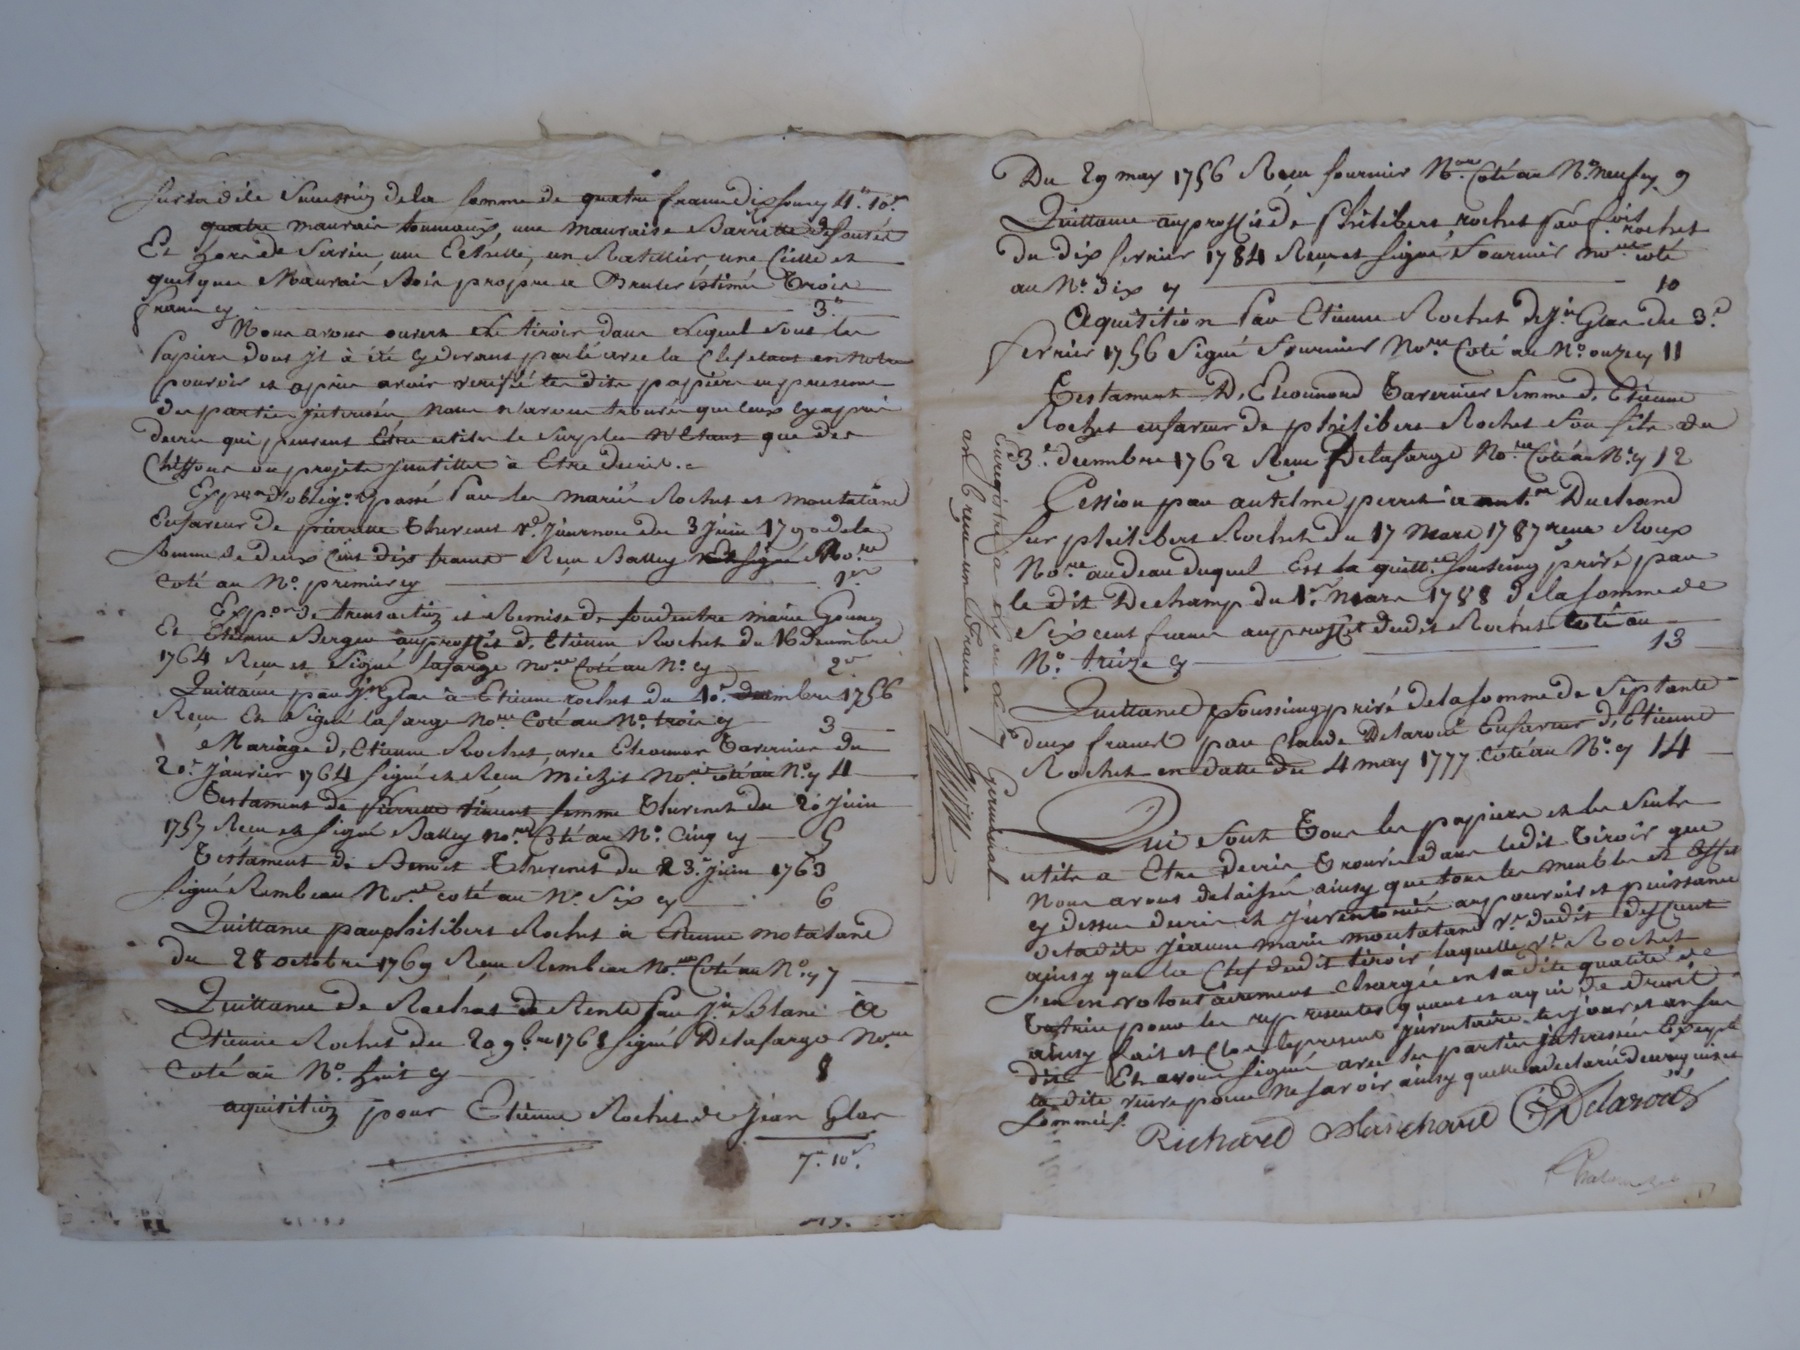 Surla dite Succession dela somme de quatre francs dix sous cy 4.# 10.s
quatre mauvais tonneaux, une mauvaise Barrette defoncée
Et hors de Service, une Echelle, un Ratellier une Cielle et
quelques Mauvais Bois propres a Bruler éstimés Trois
francs cy 3.#
Nous avons ouvert Le tiroir dans Lequel sont les
Papiers dont jl à été cy devant parlé avec la Clef etant en notre
pouvoir et après avoir verifié les dits papiers en presence
des parties jnteressées Nous n'avons trouvés que ceux cy après
decris qui peuvent Être utiles le surplus N'Etant que des
Chiffons ou projets jnutilles à Etre decris.
Exp.on d'oblig.on passé Par les mariés Rochet et moutatané
En faveur de pierrette Thevenet v.e Journou du 3 Juin 1790 dela
somme de deux Cent dix francs Reçu Balley Et signé No.re
Coté au N.o premier cy 1.er
Exp.on de transaction et Remise de fond entre marie
Et Etienne Berger au proffit d'Etienne Rochet du 16 Decembre
1764 Reçu et Signé Lafarge No.re Coté au N.o cy 2.
Quittance par J.n Glas à Etienne rochet du 10.e decembre 1756
Reçu Et Signé lafarge No.re Coté au N.o trois cy 3
Mariage d'Etienne Rochet, avec Eleonor Tavernier du
20.e Janvier 1764 signé et Reçu No.re coté au N.o cy 4
Testament de Pierrette femme Thevenet du 20 Juin
1757 Reçu et signé Balley No.re Coté au N.o Cinq cy 5
Testament de Benoit Thevenet du 23.e Juin 1763
signé Rambeau No.re coté au N.o Six cy 6
Quittance par philibert Rochet à Etienne motatané
du 28 octobre 1769 Reçu Rambeau No.re Coté au N.o cy 7
Quittance de Rachat de Rente Par J.n Blanc à
Etienne Rochet du 20 9.bre 1768 signé Delafarge No.re
Coté au N.o huit cy 8
aquisition pour Etienne Rochet de Jean Glas
7.# 10.s
Du 29 may 1756 Reçu fournier No.re Coté au N.o neuf cy 9
Quittance au proffit de Philibert rochet Par rochet
du dix fevrier 1784 Reçu et signé Fournier No.re coté
au N.o dix cy 10
Aquisition Par Etienne Rochet de J.n Glas du 3.e
fevrier 1756 Signé Fournier No.re Coté au N.o onze cy 11
Testament D'Eleonord Tavernier Femme d'Etienne
Rochet en faveur de philibert Rochet Son fils du
3.e decembre 1762 Reçu Delafarge No.re Coté au N.o cy 12
Cession par antelme perret à ant.ne Duchand
sur philibert Rochet du 17 Mars 1787 recu Roux
No.re au deau duquel Est la quitt.ce sousseing privé par
le dit Dechamp du 1.er Mars 1788 de la somme de
Six cent francs au proffit dudit Rochet Coté au
N.o treize cy 13
Quittance Soussing privé de la somme de Septante
deux francs par Claude Delaroüé En faveur d'Etienne
Rochet en datte du 4 may 1777 Coté au N.o cy 14
Qui sont Tous les papiers et les seuls
utils a Etre decris Trouvés dans ledit Tiroir que
Nous avons delaissés ainsy que tous les meubles et Effet
cy dessus decris et jnventoriés au pouvoir et puissance
de ladite Jeanne Marie moutatané v.e dudit deffunt
ainsy que la Clef dudit tiroir laquelle v.e Rochet
s'en en volontairement chargée en sa dite qualité de
Tutrice pour les representer quant et a qui de droit
ainsy fait et Clos le present jnventaire les jour et an sus
dit Et avons signé avec les parties jnteressées Excepté
la dite veuve pour Ne savoir ainsy quelle a declaré de ce enquise et
Sommée.
Richard Blanchard Delaroüé
Enregistré a le Germinal
an reçu un Franc